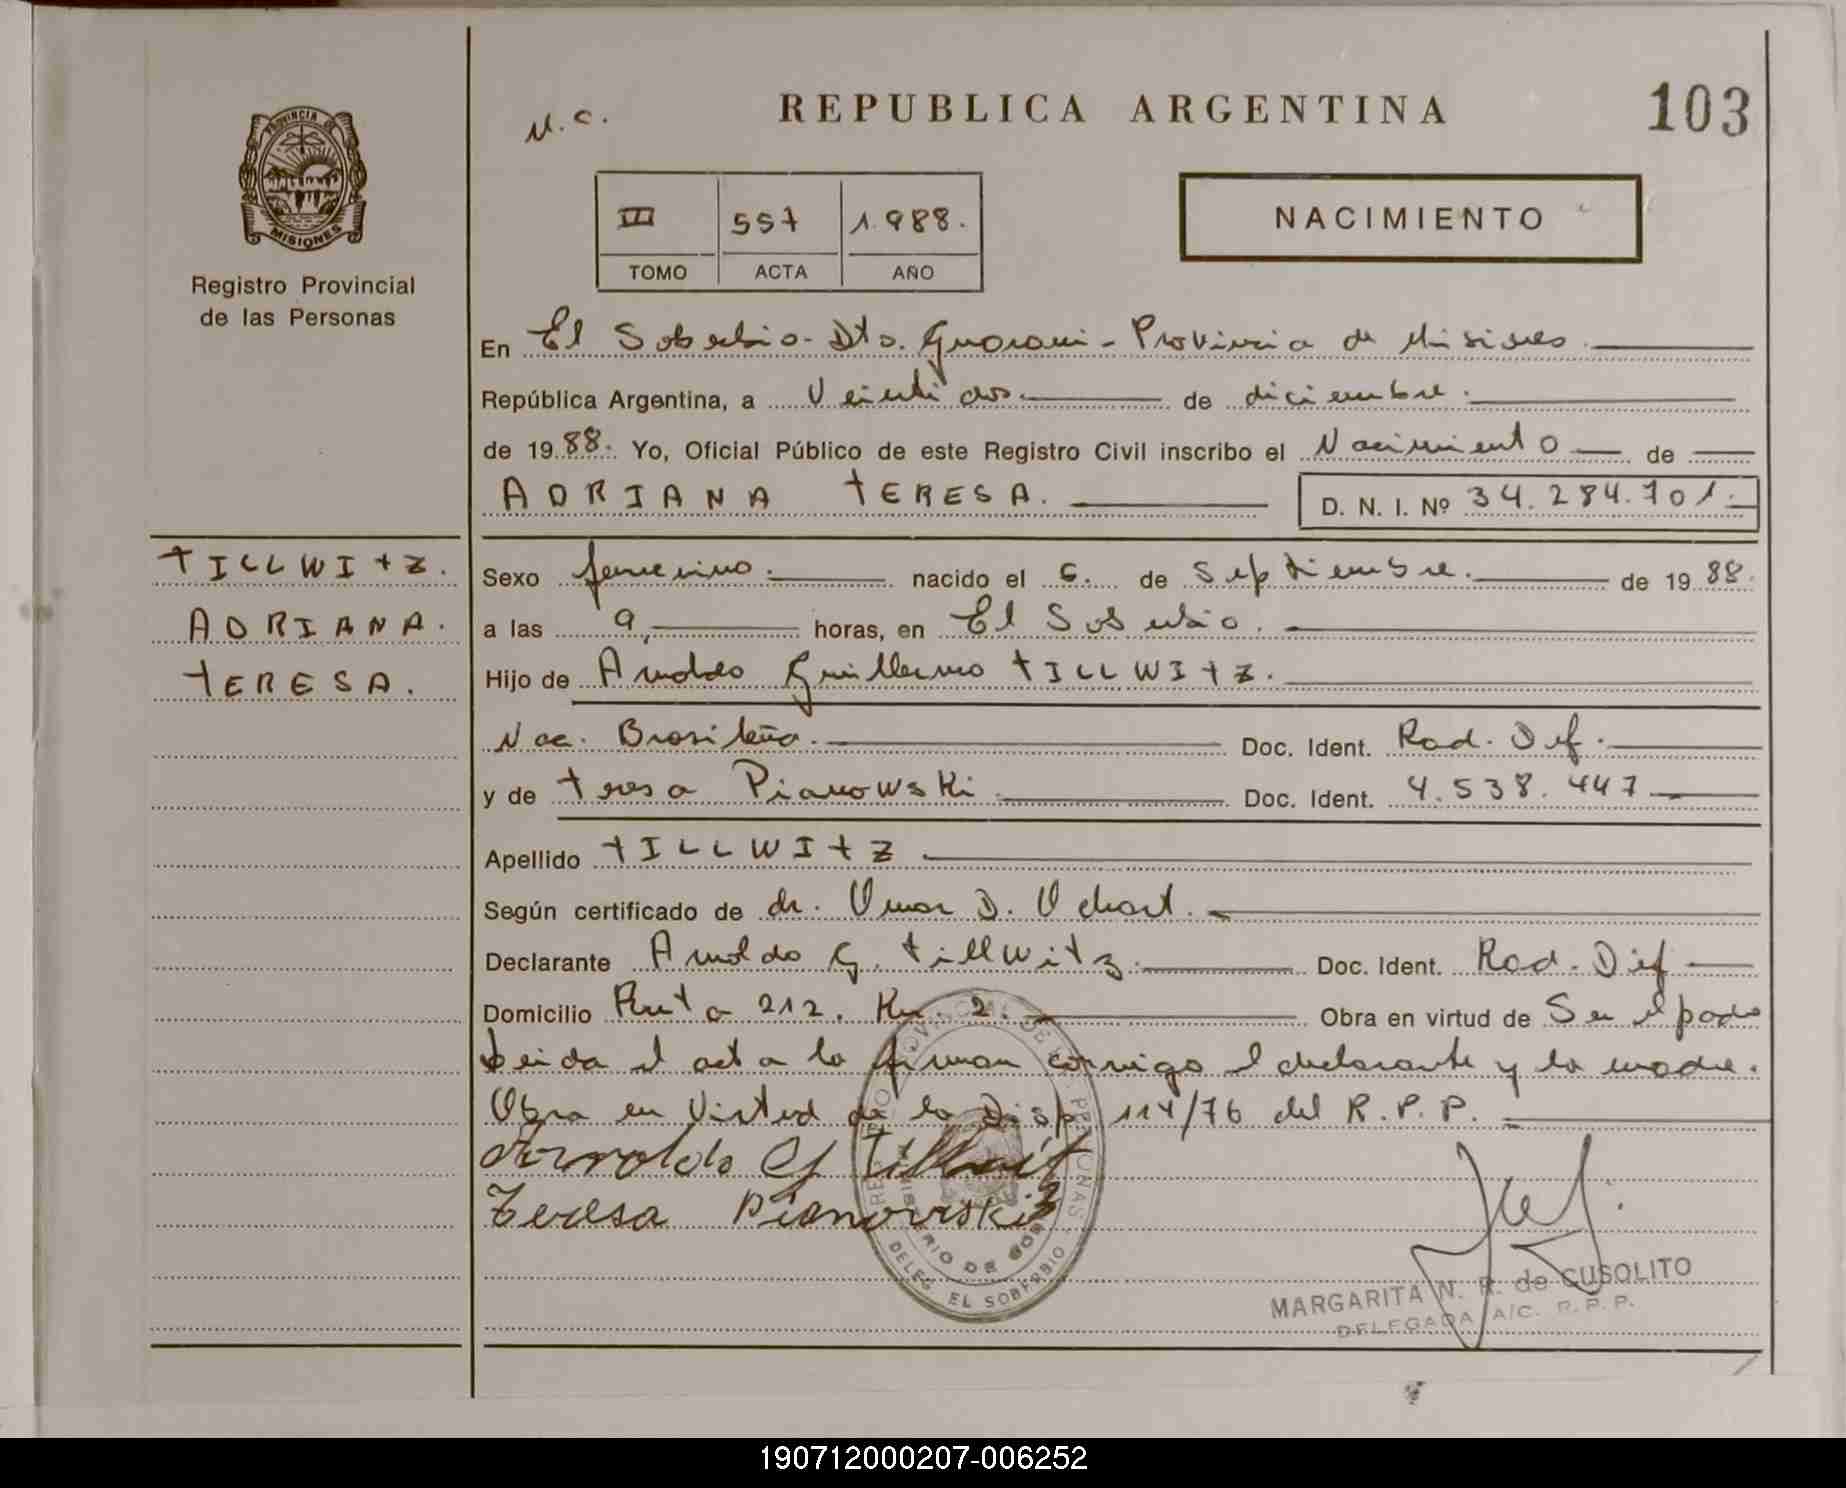 PROVINCIA DE
MISIONES
Registro Provincial
de las Personas
N.C.
REPUBLICA ARGENTINA
103
III 557 1.988.
TOMO ACTA AÑO
NACIMIENTO
En El Soberbio - Dto. Guarani - Provincia de Misiones
República Argentina, a Veintidos de diciembre.
de 19 88. Yo, Oficial Público de este Registro Civil inscribo el Nacimiento de
ADRIANA TERESA. D. N. I. Nº 34.284.701.
TILLWITZ.
ADRIANA.
TERESA.
Sexo femenino. nacido el 6. de Septiembre. de 19 88.
a las 9, horas, en El Soberbio.
Hijo de Arnoldo Guillermo TILLWITZ.
Nac. Brasileña. Doc. Ident. Rad. Def.
y de Teresa Pianowski Doc. Ident. 4.538.447
Apellido TILLWITZ
Según certificado de dr. Omar D.
Declarante Arnoldo G. Tillwitz. Doc. Ident. Rad. Def
Domicilio Ruta 212. Km. 2. Obra en virtud de Ser el padre
Leida el acta la firman conmigo el declarante y la madre.
Obra en Virtud de la Disp. 114/76 del R.P.P.
Arnoldo G Tillwitz
Teresa Pianoviski
REGISTRO PROVINCIAL DE LAS PERSONAS
MINISTERIO DE GOB
DELEG. EL SOBERBIO
MARGARITA N. R. de CUSOLITO
DELEGADA A/C. R.P.P.
190712000207-006252